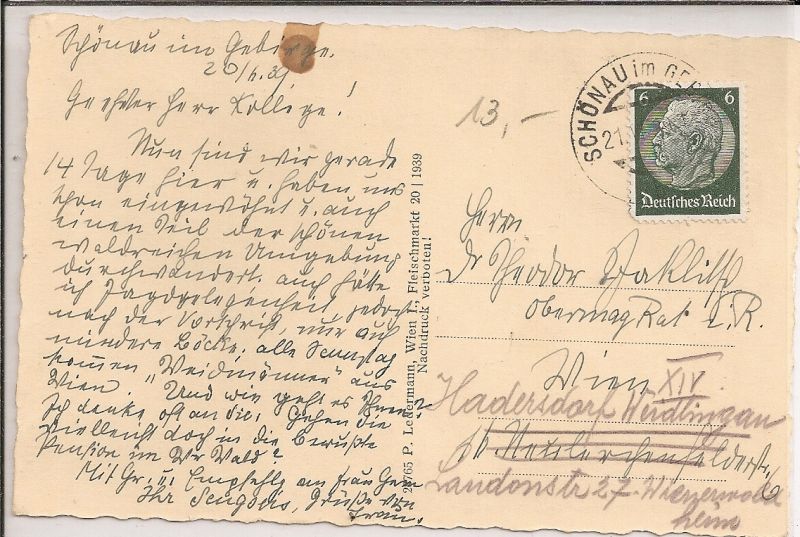 Schönau im Gebirge.
20/6.39
Geehrter Herr Kollege!
Nun sind wir gerade
14 Tage hier u. haben uns
schon eingewöhnt u. auch
einen Teil der schönen
waldreichen Umgebung
durchwandert, auch hätte
ich Jagdgelegenheit, jedoch
nach der Vorschrift, nur auf
mindere Böcke; alle Samstag
kommen "Weidmänner" aus
Wien. Und wie geht es Ihnen
Ich denke oft an Sie. Gehen Sie
vielleicht doch in die bewußte
Pension im Wr Wald?
Mit Gr. u. Empfehlg an Frau Gem
Ihr Grüße von
Frau.
20/65 P. Ledermann, Wien I., Fleischmarkt 20 | 1939
Nachdruck verboten!
13,-
SCHÖNAU im GEB
21.
6 6
Deutsches Reich
Herrn
Dr Theodor
Obermag Rat i. R.
Wien XIV
Hadersdorf Weidlingau
Neulerchenfelderstr
Laudonstr 27 Wienerwald
heim